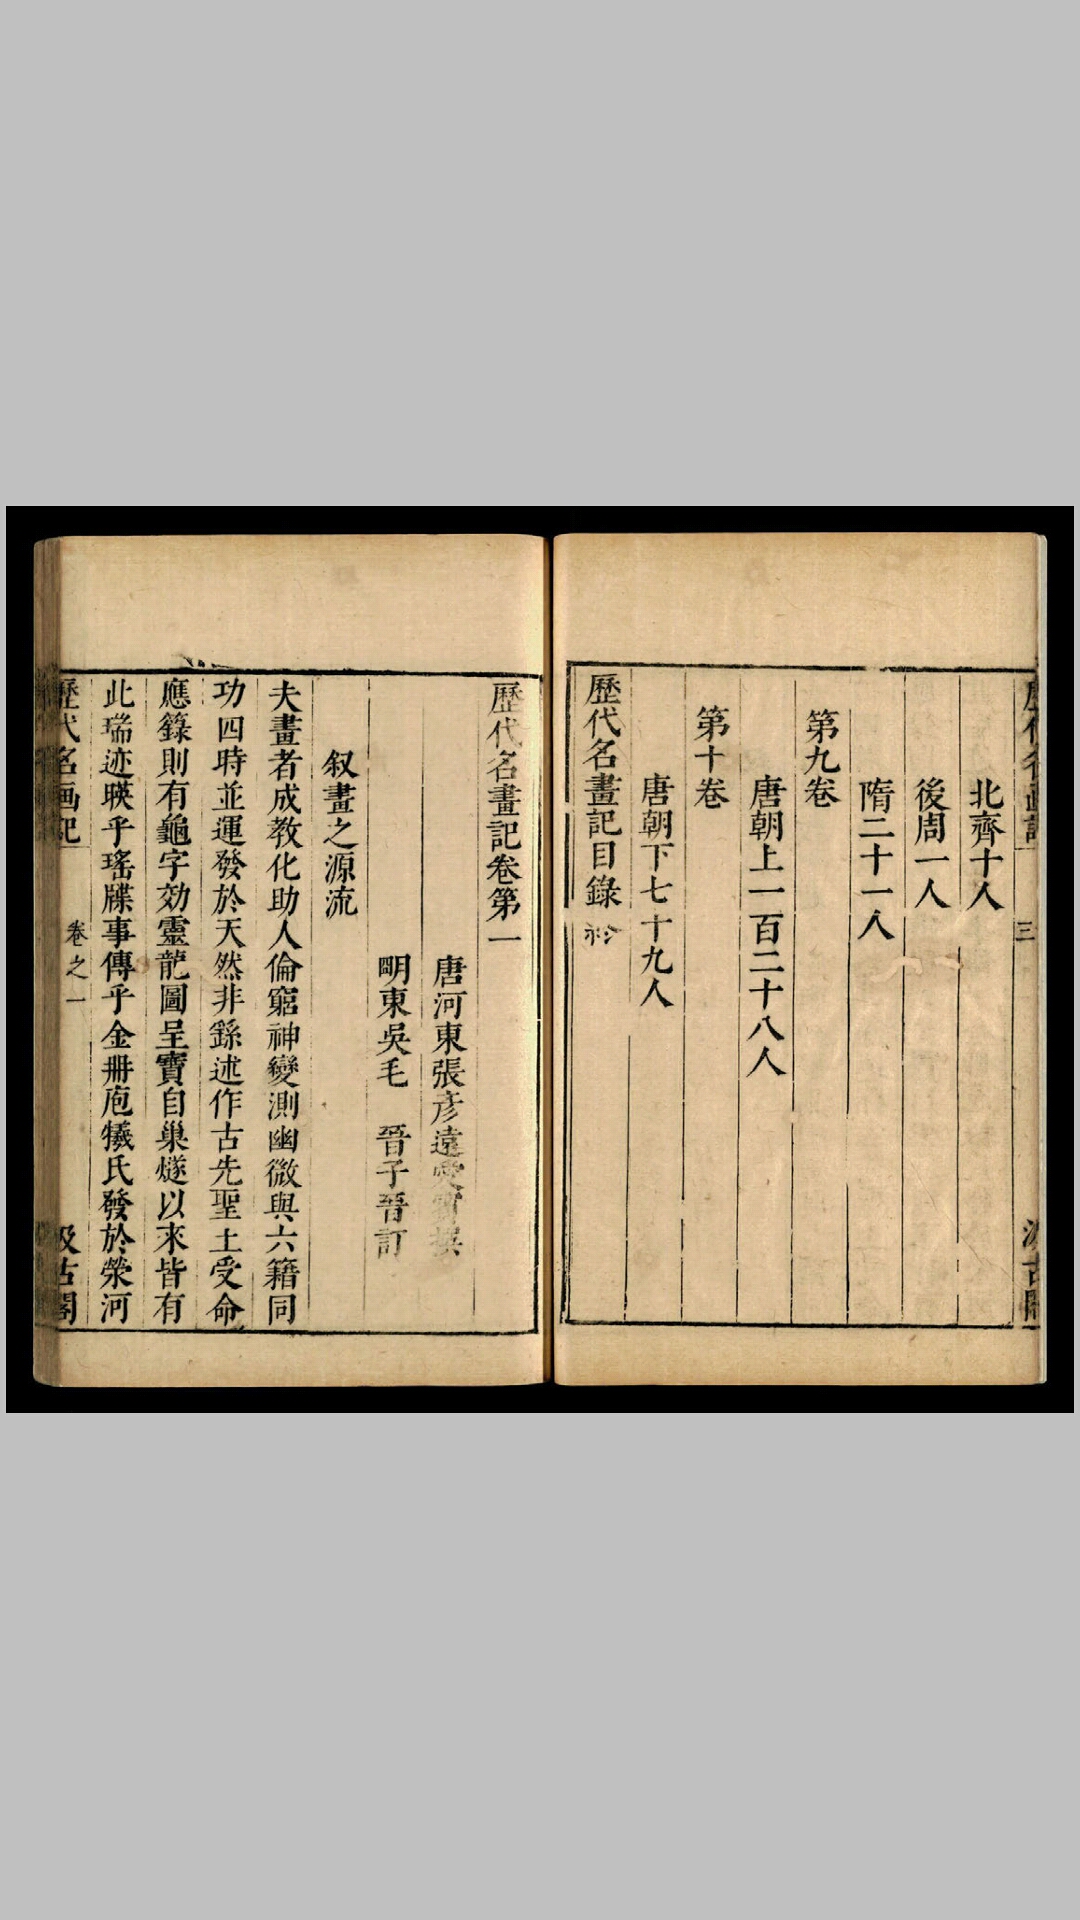 北齊十人
後周一人
隋二十一人
第九卷
唐朝上一百二十八人
第十卷
唐朝下七十九人
歷代名畫記目錄
三
歷代名畫記卷第一
唐河東張彥遠愛賓撰
明東吳毛　晉子晉訂
叙畫之源流
夫畫者成教化助人倫窮神變測幽微與六籍同
功四時並運發於天然非繇述作古先聖王受命
應籙則有龜字効靈龍圖呈寶自巢燧以來皆有
此瑞迹暎乎瑤牒事傳乎金冊庖犧氏發於滎河
歷代名画記
卷之一
汲古閣